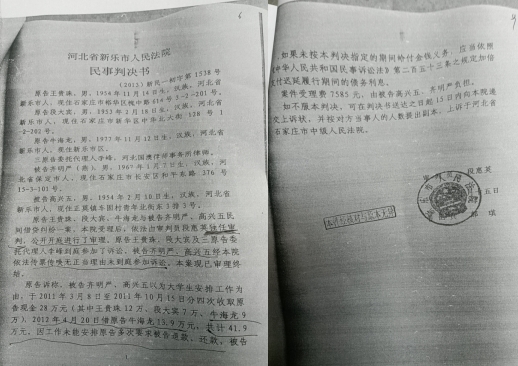 6
河北省新乐市人民法院
民事判决书
(2013)新民一初字第1538号
原告王贵珠,男,1954年11月14日生,汉族,河北省
新乐市人,现住石家庄市裕华区槐中路
原告段大宾,男,1953年2月18日生,汉族,河北省
新乐市人,现住石家庄市新华区中华北大街128号1
-2-201号。
原告牛海龙,男,1977年11月12日生,汉族,河北省
新乐市人,现住新乐市区。
三原告委托代理人李峰,河北国潮律师事务所律师。
被告齐明严(燕),男,1967年1月7日生,汉族,河北
省保定市人,现住石家庄市长安区和平东路376号
15-3-101号。
被告高兴五,男,1954年2月10日生,汉族,河北省
新乐市人,现住正莫镇东田村青年北街东3排3号。
原告王贵珠、段大宾、牛海龙与被告齐明严、高兴五民
间借贷纠纷一案,本院受理后,依法由审判员段惠英独任审
判,公开开庭进行了审理,原告王贵珠、段大宾及三原告委
托代理人李峰到庭参加了诉讼,被告齐明严、高兴五经本院
依法传票传唤无正当理由未到庭参加诉讼,本案现已审理终
结。
原告诉称,被告齐明严、高兴五以为大学生安排工作为
由,于2011年3月8日至2011年10月15日分四次收取原
告现金28万元(其中王贵珠12万、段大宾7万、牛海龙9
万),2012年4月20日借原告牛海龙13.9万元,共计41.9
万元,因工作未能安排原告多次要求被告退款、还款,被告
如果未按本判决指定的期间给付金钱义务,应当依照
《中华人民共和国民事诉讼法》第二百五十三条之规定加倍
支付迟延履行期间的债务利息。
案件受理费7585元,由被告高兴五、齐明严负担。
如不服本判决,可在判决书送达之日起15日内向本院递
交上诉状,并按对方当事人的人数提出副本,上诉于河北省
石家庄市中级人民法院。
段惠英
五日
本件经核对与原本无异